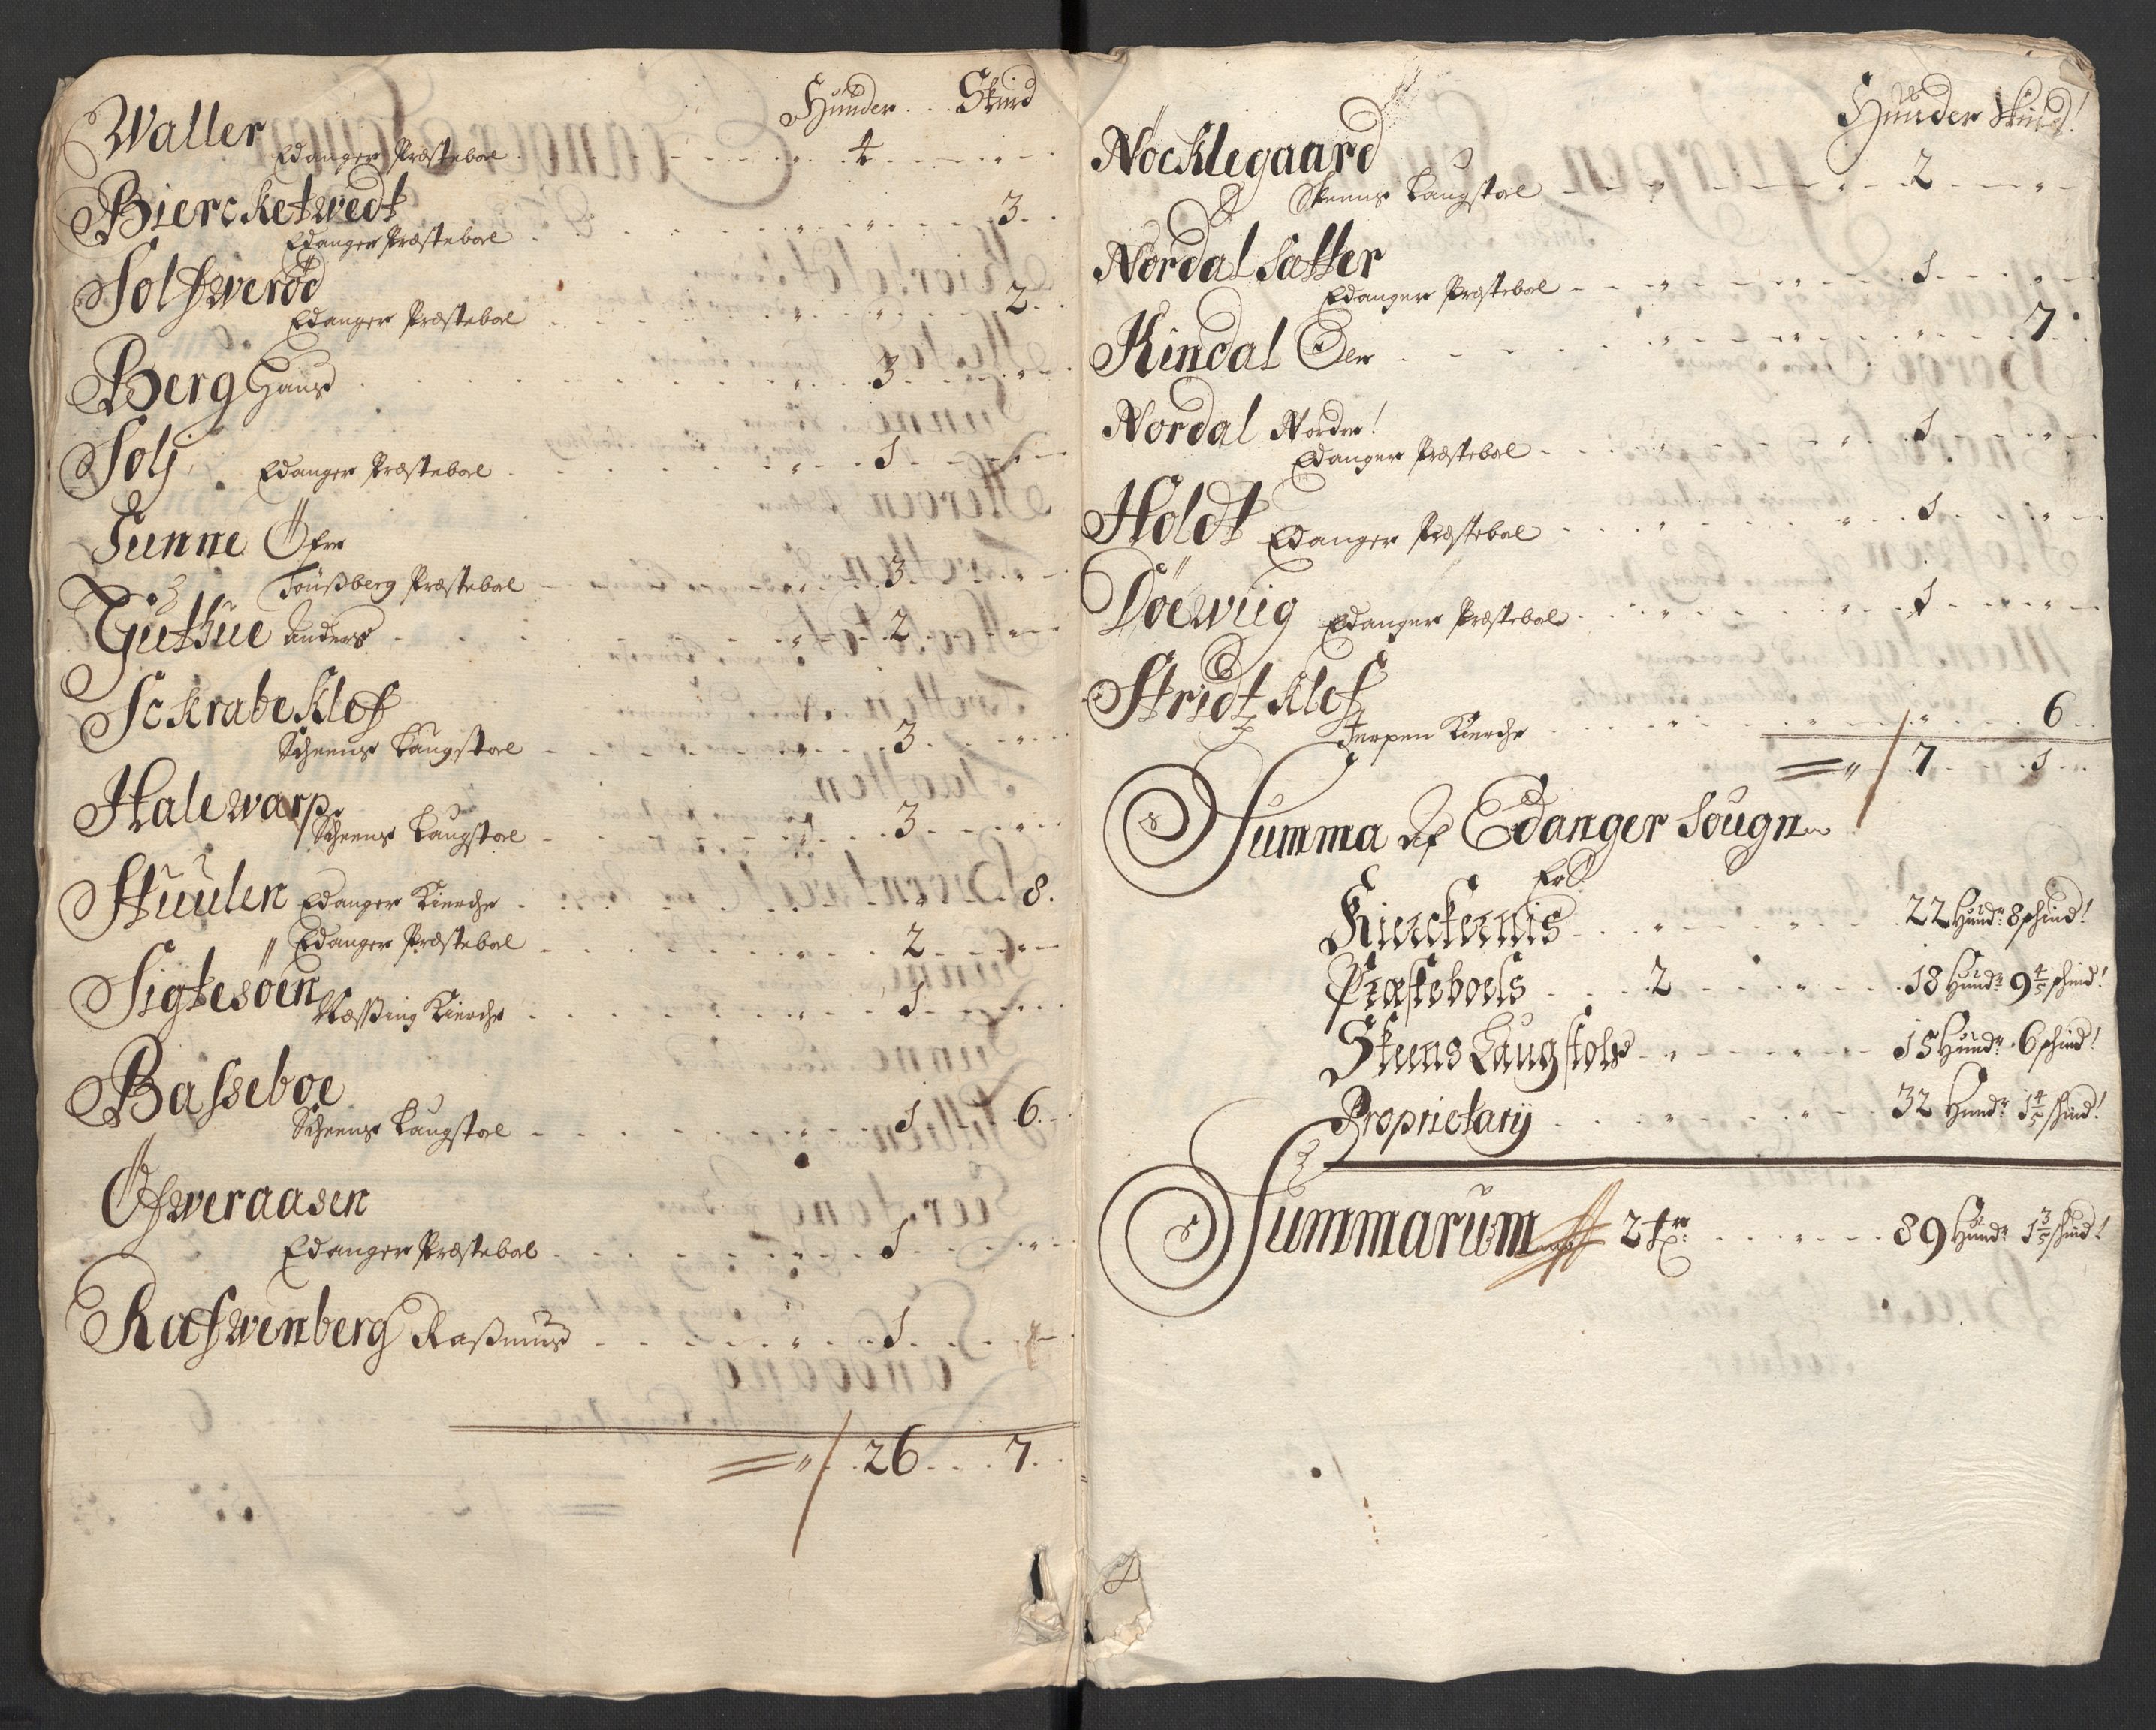 Hünder Skind
Waller
Edanger Præsteboel 4
Biercketwedt
Edanger Præsteboel 3
Solfwerød
Edanger Præsteboel 2
Berg Hans 3
Solj Edanger Præsteboel 1
Sunne Öfre
Tönßberg Præsteboel 3
Guthue Anders 2
Sckrabeklef
Scheens Laugstoel 3
Halewarp
Scheens Laugstoel 3
Stuulen Edanger Kierche 8
Edanger Præsteboel 2
Sigtesöen
Næßing Kierche 1
Basseboe
Scheens Laugstoel 1 6
Öfweraasen
Edanger Præsteboel 1
Rafwenberg Raßmus 1
26 7
Hünder Skind
Nöcklegaard
Skeens Laugstoel 2
Nordal Satter
Edanger Præsteboel 1
Kindal Oer 7
Nordal Nordre
Edanger Præsteboel 1
Holdt Edanger Præsteboel 1
Döewiig Edanger Præsteboel 1
Stridtzklef
Jerpen Kierche 6
7 1
Summa af Edanger Sougn
Er
Kierckernis 22 Hund: 8 schind!
Præsteboels 2 18 Hund: 9 4/5 schind!
Skeens Laugstols 15 Hund: 6 schind!
Proprietarij 32 Hund: 1 4/5 schind!
Summarum 2 tr: 89 Hund: 1 3/5 schind!